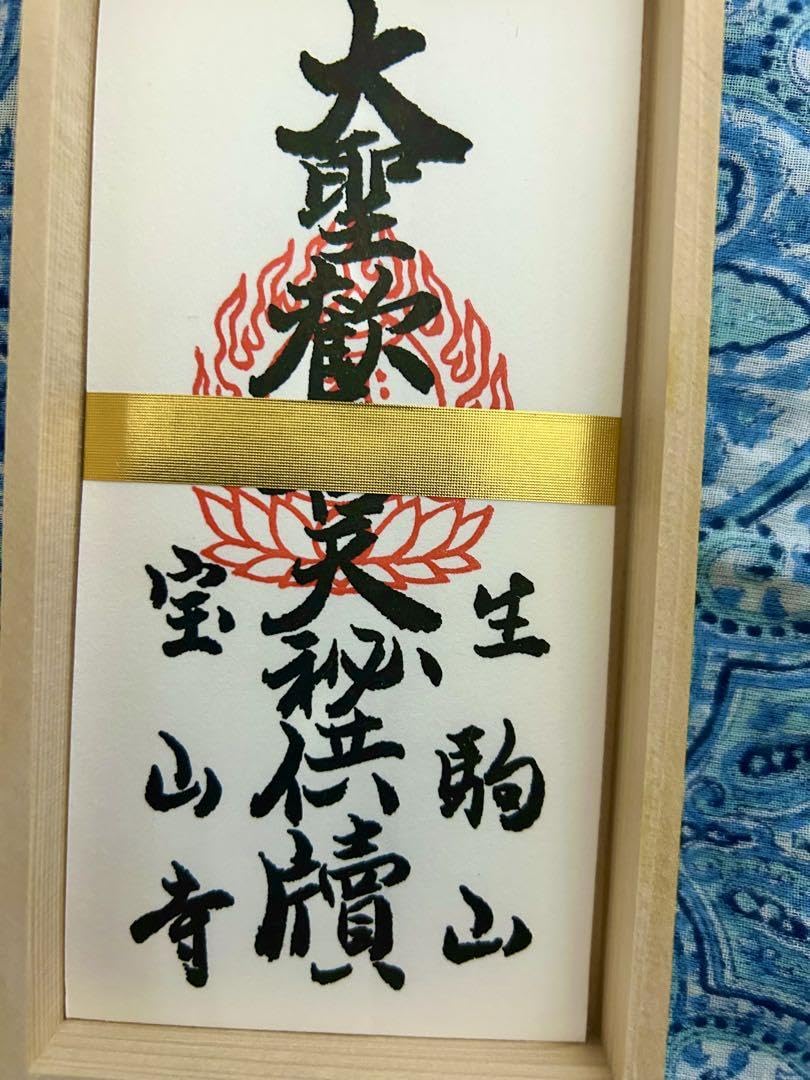 生駒山
大聖歓天秘供牘
宝山寺